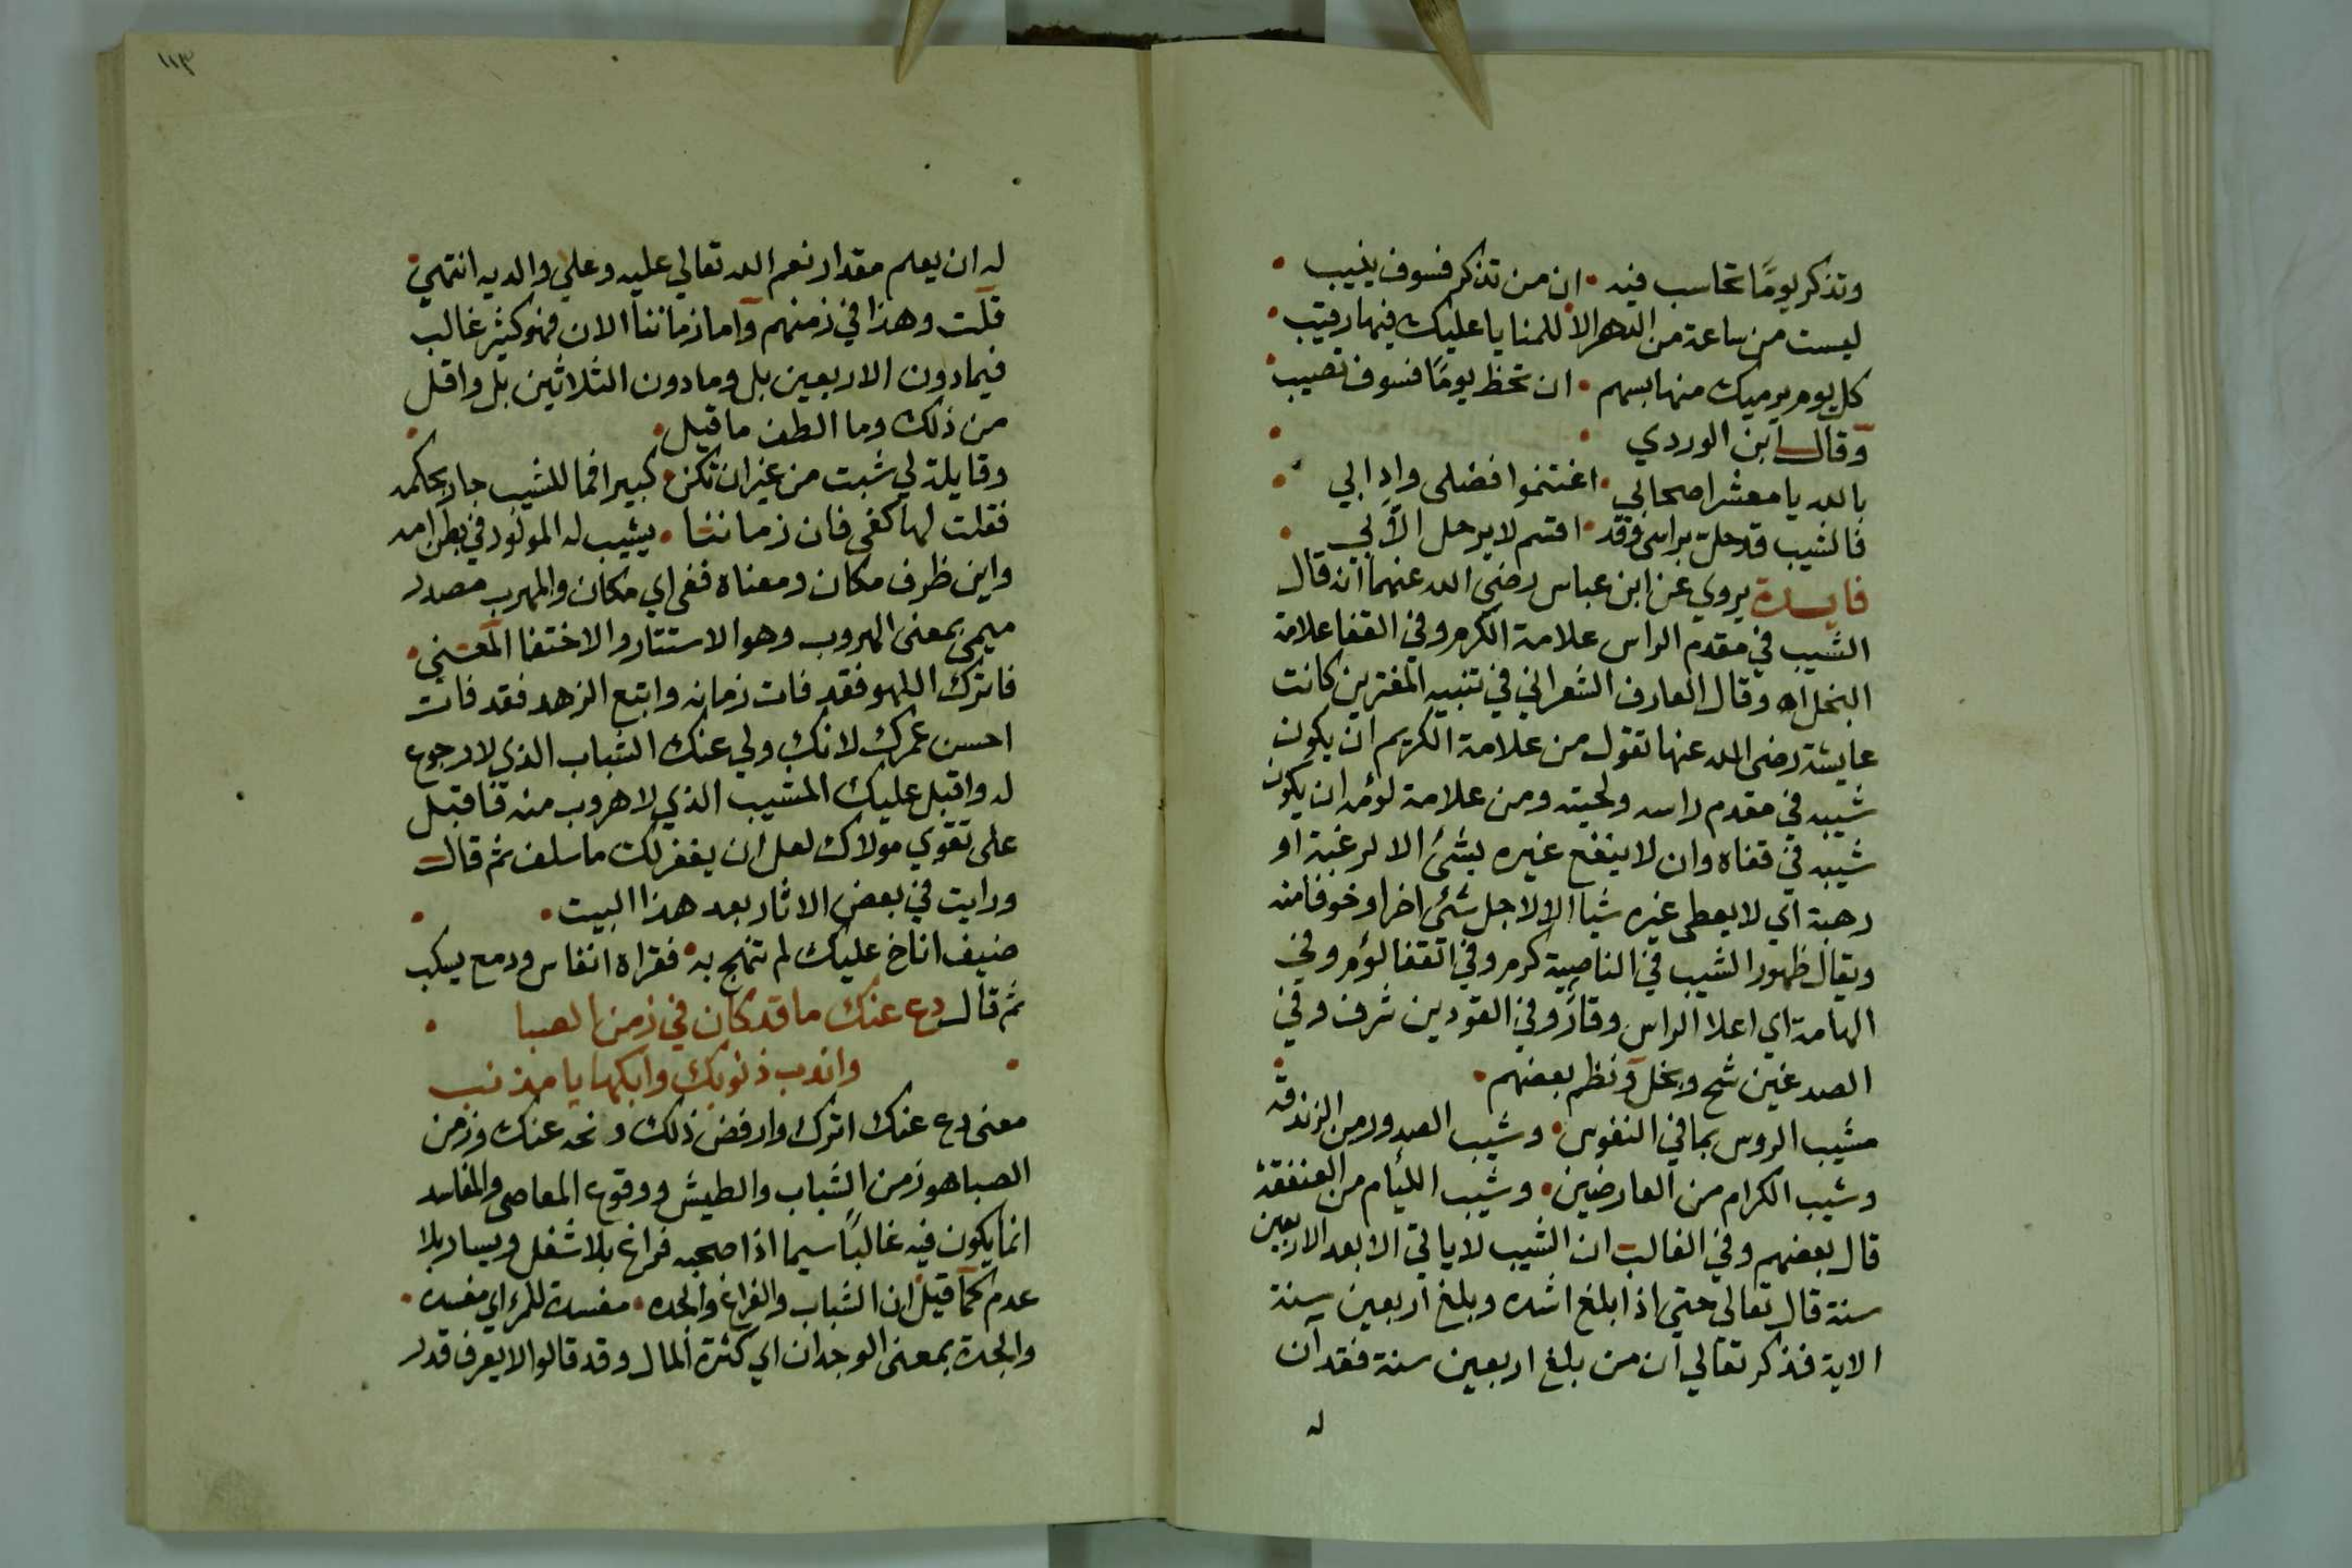 وتذكر يومًا تحاسب فيه • ان من تذكر فسوف ينيب •
ليست من ساعة من الدهر الا للمنايا عليك فيها رقيب •
كل يوم يرميك منها بسهم • ان تحظ يومًا فسوف تصيب •
وقال ابن الوردي •
بالله يا معشر اصحابي • اغتنموا فضلى وادابي •
فالشيب قد حل براسى وقد • اقسم لا يرحل الا بي •
فايدة يروي عن ابن عباس رضى الله عنهما انه قال
الشيب في مقدم الراس علامة الكرم وفي القفا علامة
البخل اه وقال العارف الشعراني في تنبيه المغترين كانت
عايشة رضى الله عنها تقول من علامة الكريم ان يكون
شيبه في مقدم راسه ولحيته ومن علامة لؤمه ان يكون
شيبه في قفاه وان لا ينفع غيره بشئ الا لرغبة او
رهبة اي لا يعطى غيره شيا الا لاجل شئ اخر او خوفا منه
ويقال ظهور الشيب في الناصية كرم وفي القفا لؤم وفي
الهامة اي اعلا الراس وقار وفي الفودين شرف وفي
الصدغين شح وبخل ونظم بعضهم •
مشيب الروس بما في النفوس • وشيب الصدور من الزندقة
وشيب الكرام من العارضين • وشيب الليام من العنفقة
قال بعضهم وفي الغالب ان الشيب لا ياتي الا بعد الاربعين
سنة قال تعالى حتى اذا بلغ اشده وبلغ اربعين سنة
الاية فذكر تعالي ان من بلغ اربعين سنة فقد ان
له
١١٣
له ان يعلم مقدار نعم الله تعالي عليه وعلي والديه انتهي •
قلت وهذا في زمنهم واما زماننا الان فهو كثير غالب
فيما دون الاربعين بل وما دون الثلاثين بل واقل
من ذلك وما الطف ما قيل •
وقايلة لي شبت من غير ان تكن • كبيرا فما للشيب جار بحكمه
فقلت لها كفى فان زماننا • يشيب له المولود في بطن امه
واين ظرف مكان ومعناه ففى اي مكان والمهرب مصدر
ميمى بمعنى الهروب وهو الاستتار والاختفا المعني •
فاترك اللهو فقد فات زمانه واتبع الزهد فقد فات
احسن عمرك لانك ولي عنك الشباب الذي لا رجوع
له واقبل عليك المشيب الذي لا هروب منه فاقبل
على تقوي مولاك لعل ان يغفر لك ما سلف ثم قال
ورايت في بعض الاثار بعد هذا البيت •
ضيف اناخ عليك لم تبهج به • فقراه انفاس ودمع يسكب
ثم قال دع عنك ما قد كان في زمن الصبا •
• واندب ذنوبك وابكها يا مذنب
معنى دع عنك اترك وارفض ذلك ونحه عنك وزمن
الصبا هو زمن الشباب والطيش ووقوع المعاصى والمفاسد
انما يكون فيه غالبًا سيما اذا صحبه فراغ بلا شغل ويسار بلا
عدم كما قيل ان الشباب والفراغ والجده • مفسدة للمرء اي مفسده •
والجدة بمعنى الوجدان اي كثرة المال وقد قالوا لا يعرف قدر